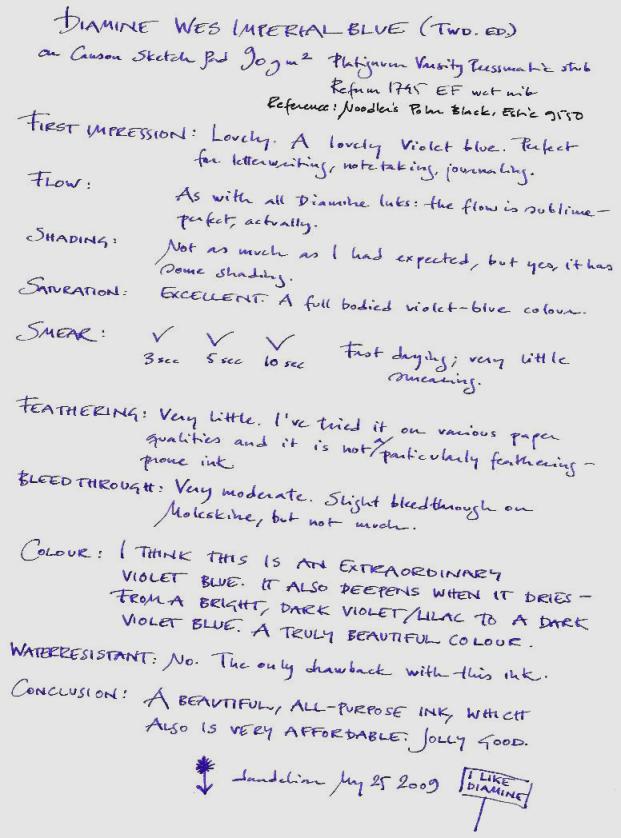 DIAMINE WES IMPERIAL BLUE (TWD. ED.)
on Canson Sketch Pad 90 g m² Platignum Varsity Pressmatic stub
Reform 1745 EF wet nib
Reference: Noodler's Polar Black, Estie 9550
FIRST IMPRESSION: Lovely. A lovely violet blue. Perfect
for letterwriting, notetaking, journaling.
FLOW:
As with all Diamine Inks: the flow is sublime –
perfect, actually.
SHADING:
Not as much as I had expected, but yes, it has
some shading.
SATURATION: EXCELLENT. A full bodied violet-blue colour.
SMEAR: ✓ ✓ ✓
3 sec 5 sec 10 sec Fast drying; very little
smearing.
FEATHERING: Very little. I've tried it on various paper
qualities and it is not a particularly feathering –
prone ink
BLEEDTHROUGH: Very moderate. Slight bleedthrough on
Moleskine, but not much.
COLOUR: I THINK THIS IS AN EXTRAORDINARY
VIOLET BLUE. IT ALSO DEEPENS WHEN IT DRIES –
FROM A BRIGHT, DARK VIOLET/LILAC TO A DARK
VIOLET BLUE. A TRULY BEAUTIFUL COLOUR.
WATERRESISTANT: No. The only drawback with this ink.
CONCLUSION: A BEAUTIFUL, ALL-PURPOSE INK, WHICH
ALSO IS VERY AFFORDABLE. JOLLY GOOD.
dandelion May 25 2009
I LIKE
DIAMINE